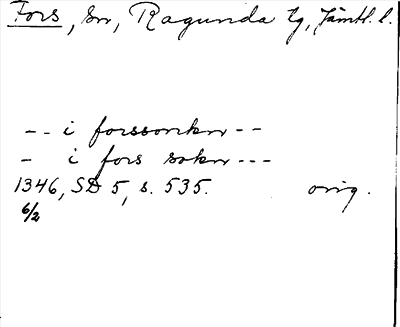 Fors, sn, Ragunda tg, Jämtl. l.
-- i forssonkn --
- i fors sokn ---
1346, SD 5, s. 535. orig.
6/2